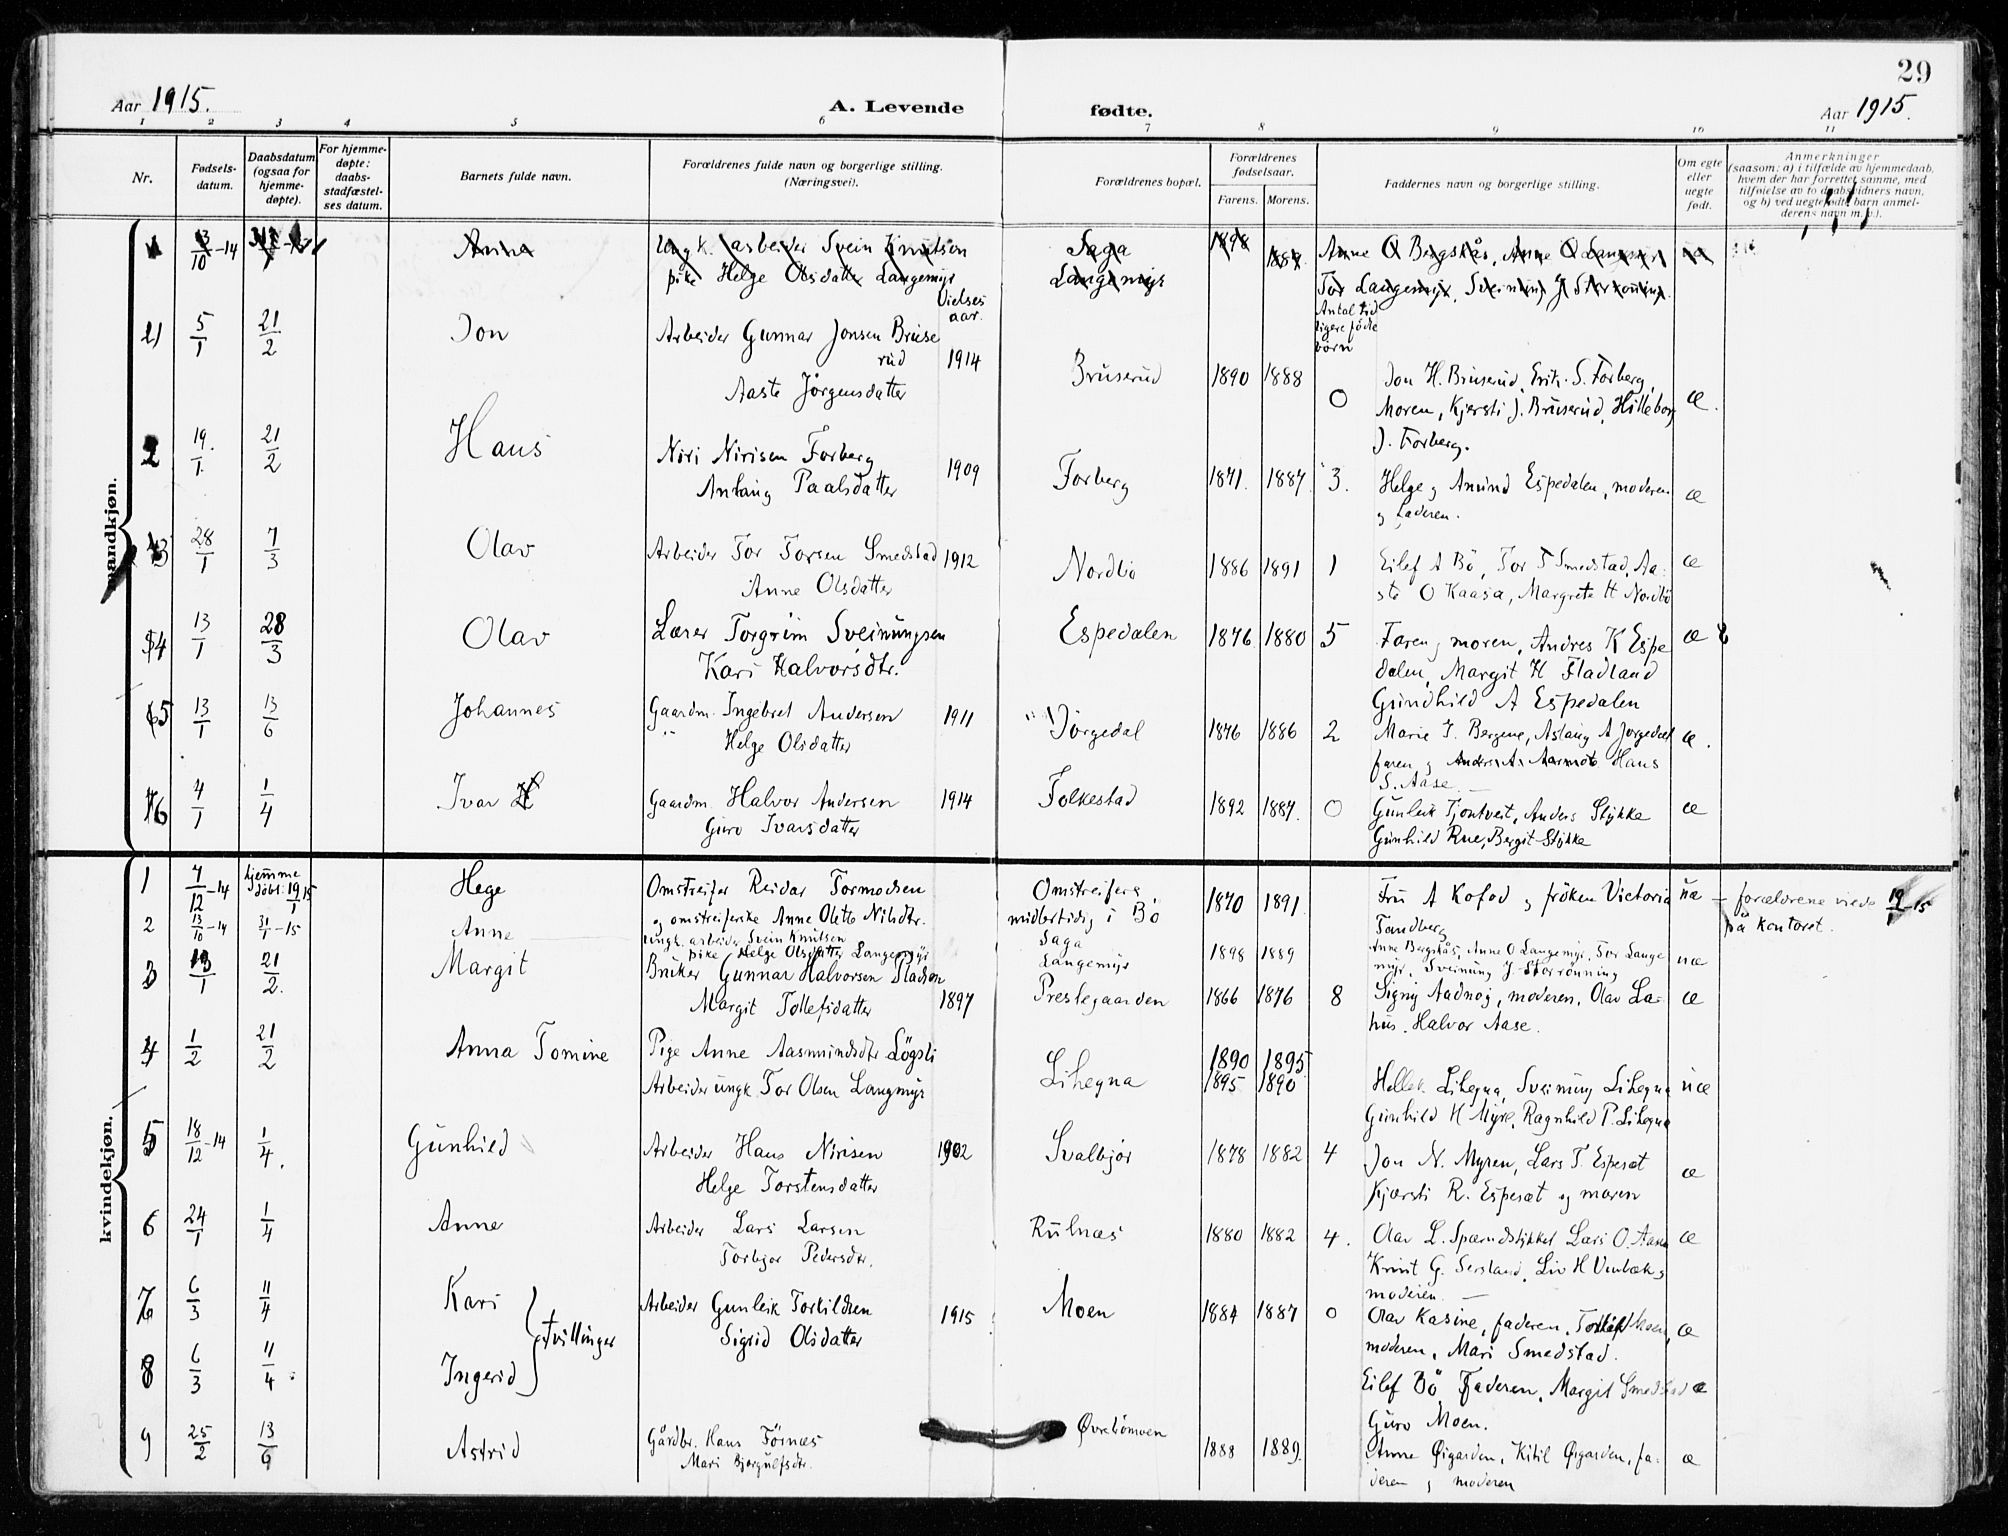 29
Aar 1915.
A. Levende fødte.
Aar 1915.
1 2 3 4 5 6 7 8 9 10 11
Nr.
Fødsels-
datum.
Daabsdatum
(ogsaa for
hjemme-
døpte).
For hjemme-
døpte:
daabs-
stadfæstel-
ses datum.
Barnets fulde navn.
Forældrenes fulde navn og borgerlige stilling.
(Næringsvei).
Forældrenes bopæl.
Forældrenes
fødselsaar.
Farens. Morens.
Faddernes navn og borgerlige stilling.
Om egte
eller
uegte
født.
Anmerkninger
(saasom: a) i tilfælde av hjemmedaab,
hvem der har forrettet samme, med
tilføielse av to daabsvidners navn,
og b) ved uegte fødte barn anmel-
derens navn m. v.).
mandkjøn.
1 13/10-14 Anna Ungk. arbeider Svein Knutsen Saga 1898 1889 Anne O Bergskås, Anne O Langemyr
pike Helge Olsdatter Langemyr Langemyr Tor Langemyr, Sveinung J Storrønning.
Vielses
aar.
Antal tid
ligere fødte
børn
1 5/1 21/2 Jon Arbeider Gunnar Jonsen Bruse
rud 1914 Bruserud 1890 1888 0 Jon H. Bruserud, Erik S. Forberg, æ.
Aaste Jørgensdatter Moren, Kjersti J. Bruserud, Hilleborg
J. Forberg.
2 19/1 21/2 Hans Niri Nirisen Forberg 1909 Forberg 1871. 1887. 3. Helge og Amund Espedalen, moderen æ
Anlaug Paalsdatter og faderen.
3 28/1 7/3 Olav Arbeider Tor Torsen Smedstad 1912 Nordbø 1886 1891 1 Eilef A Bö, Tor T Smedstad, Aa- æ
Anne Olsdatter ste O Kaasa, Margrete H Nordbö
4 13/1 28/3 Olav Lærer Torgrim Sveinungsen Espedalen 1876 1880 5 Faren og moren, Andres K Espe æ
Kari Halvorsdtr. dalen, Margit H Fladland
Gundhild A Espedalen
5 13/1 13/6 Johannes Gaardm. Ingebret Andersen 1911 Jörgedal 1876 1886 2 Marie J. Bergene, Aslaug A Jorgedal æ.
Helge Olsdatter faren og Anders A. Hans
S. Aase
6 4/1 1/4 Ivar Gaardm. Halvor Andersen 1914 Folkestad 1892 1887. 0 Gunleik Tjontveit, Anders Stykke æ
Guro Ivarsdatter Gunhild Rue, Bergit Stykke
kvindekjøn.
1 7/12-14 hjemme
döbt: 19/1 15 Hege Omstreifer Reidar Tormodsen Omstreifere 1870 1891 Fru A Kofod og fröken Victoria uæ — forældrene viede 19/1-15
og omstreiferske Anne Olette Nilsdtr. midlertidig i Bö Tandberg på kontoret.
2 13/10-14 31/1-15 Anne ungk. arbeider Svein Knutsen Saga 1898 1889 Anne Bergskås, Anne O Langemyr, Tor Lange uæ
pike Helge Olsdatter Langemyr Langemyr myr, Sveinung J. Storrönning
3 13/1 21/2. Margit Bruker Gunnar Halvorsen 1897 Prestegaarden 1866 1876 8 Signy Aadnøj, moderen, Olav La- æ
Margit Tollefsdatter hus. Halvor Aase.
4 1/2 21/2 Anna Tomine Pige Anne Aasmundsdtr Lögsli 1890 1895
Arbeider ungk. Tor Olsen Langmyr Lihegna 1895 1890 Hellek Lihegna, Sveinung Lihegna uæ
Gunhild H Myre, Ragnhild P. Lihegna
5 18/12-14 1/4. Gunhild Arbeider Hans Nirisen 1902 Svalbjör 1878 1882 4 Jon N. Myren, Lars T. Espesæt æ
Helge Torstensdatter Kjærsti R. Espesæt og moren
6 24/1 1/4 Anne Arbeider Lars Larsen Rulnæs 1880 1882 4. Olav L. Lars O. Aasen æ
Torbjor Pedersdtr. Knut G. Sersland, Liv H og
moderen. —
7 6/3 11/4 Kari } Tvillinger Arbeider Gunleik Torkildsen 1915 Moen 1884 1887 0 Olav Kasine, faderen, Torleif Moen, æ
Sigrid Olsdatter moderen, Mari Smedstad.
8 6/3 11/4 Ingerid Eilef Bö Faderen, Margit Smedstad æ
Guro Moen.
9 25/2 13/6 Astrid Gårdbr. Hans Förnæs 1888 1889. Anne Øigarden, Kitil Øigarden, fa- æ
Mari Bjørgulfsdtr. deren og moderen